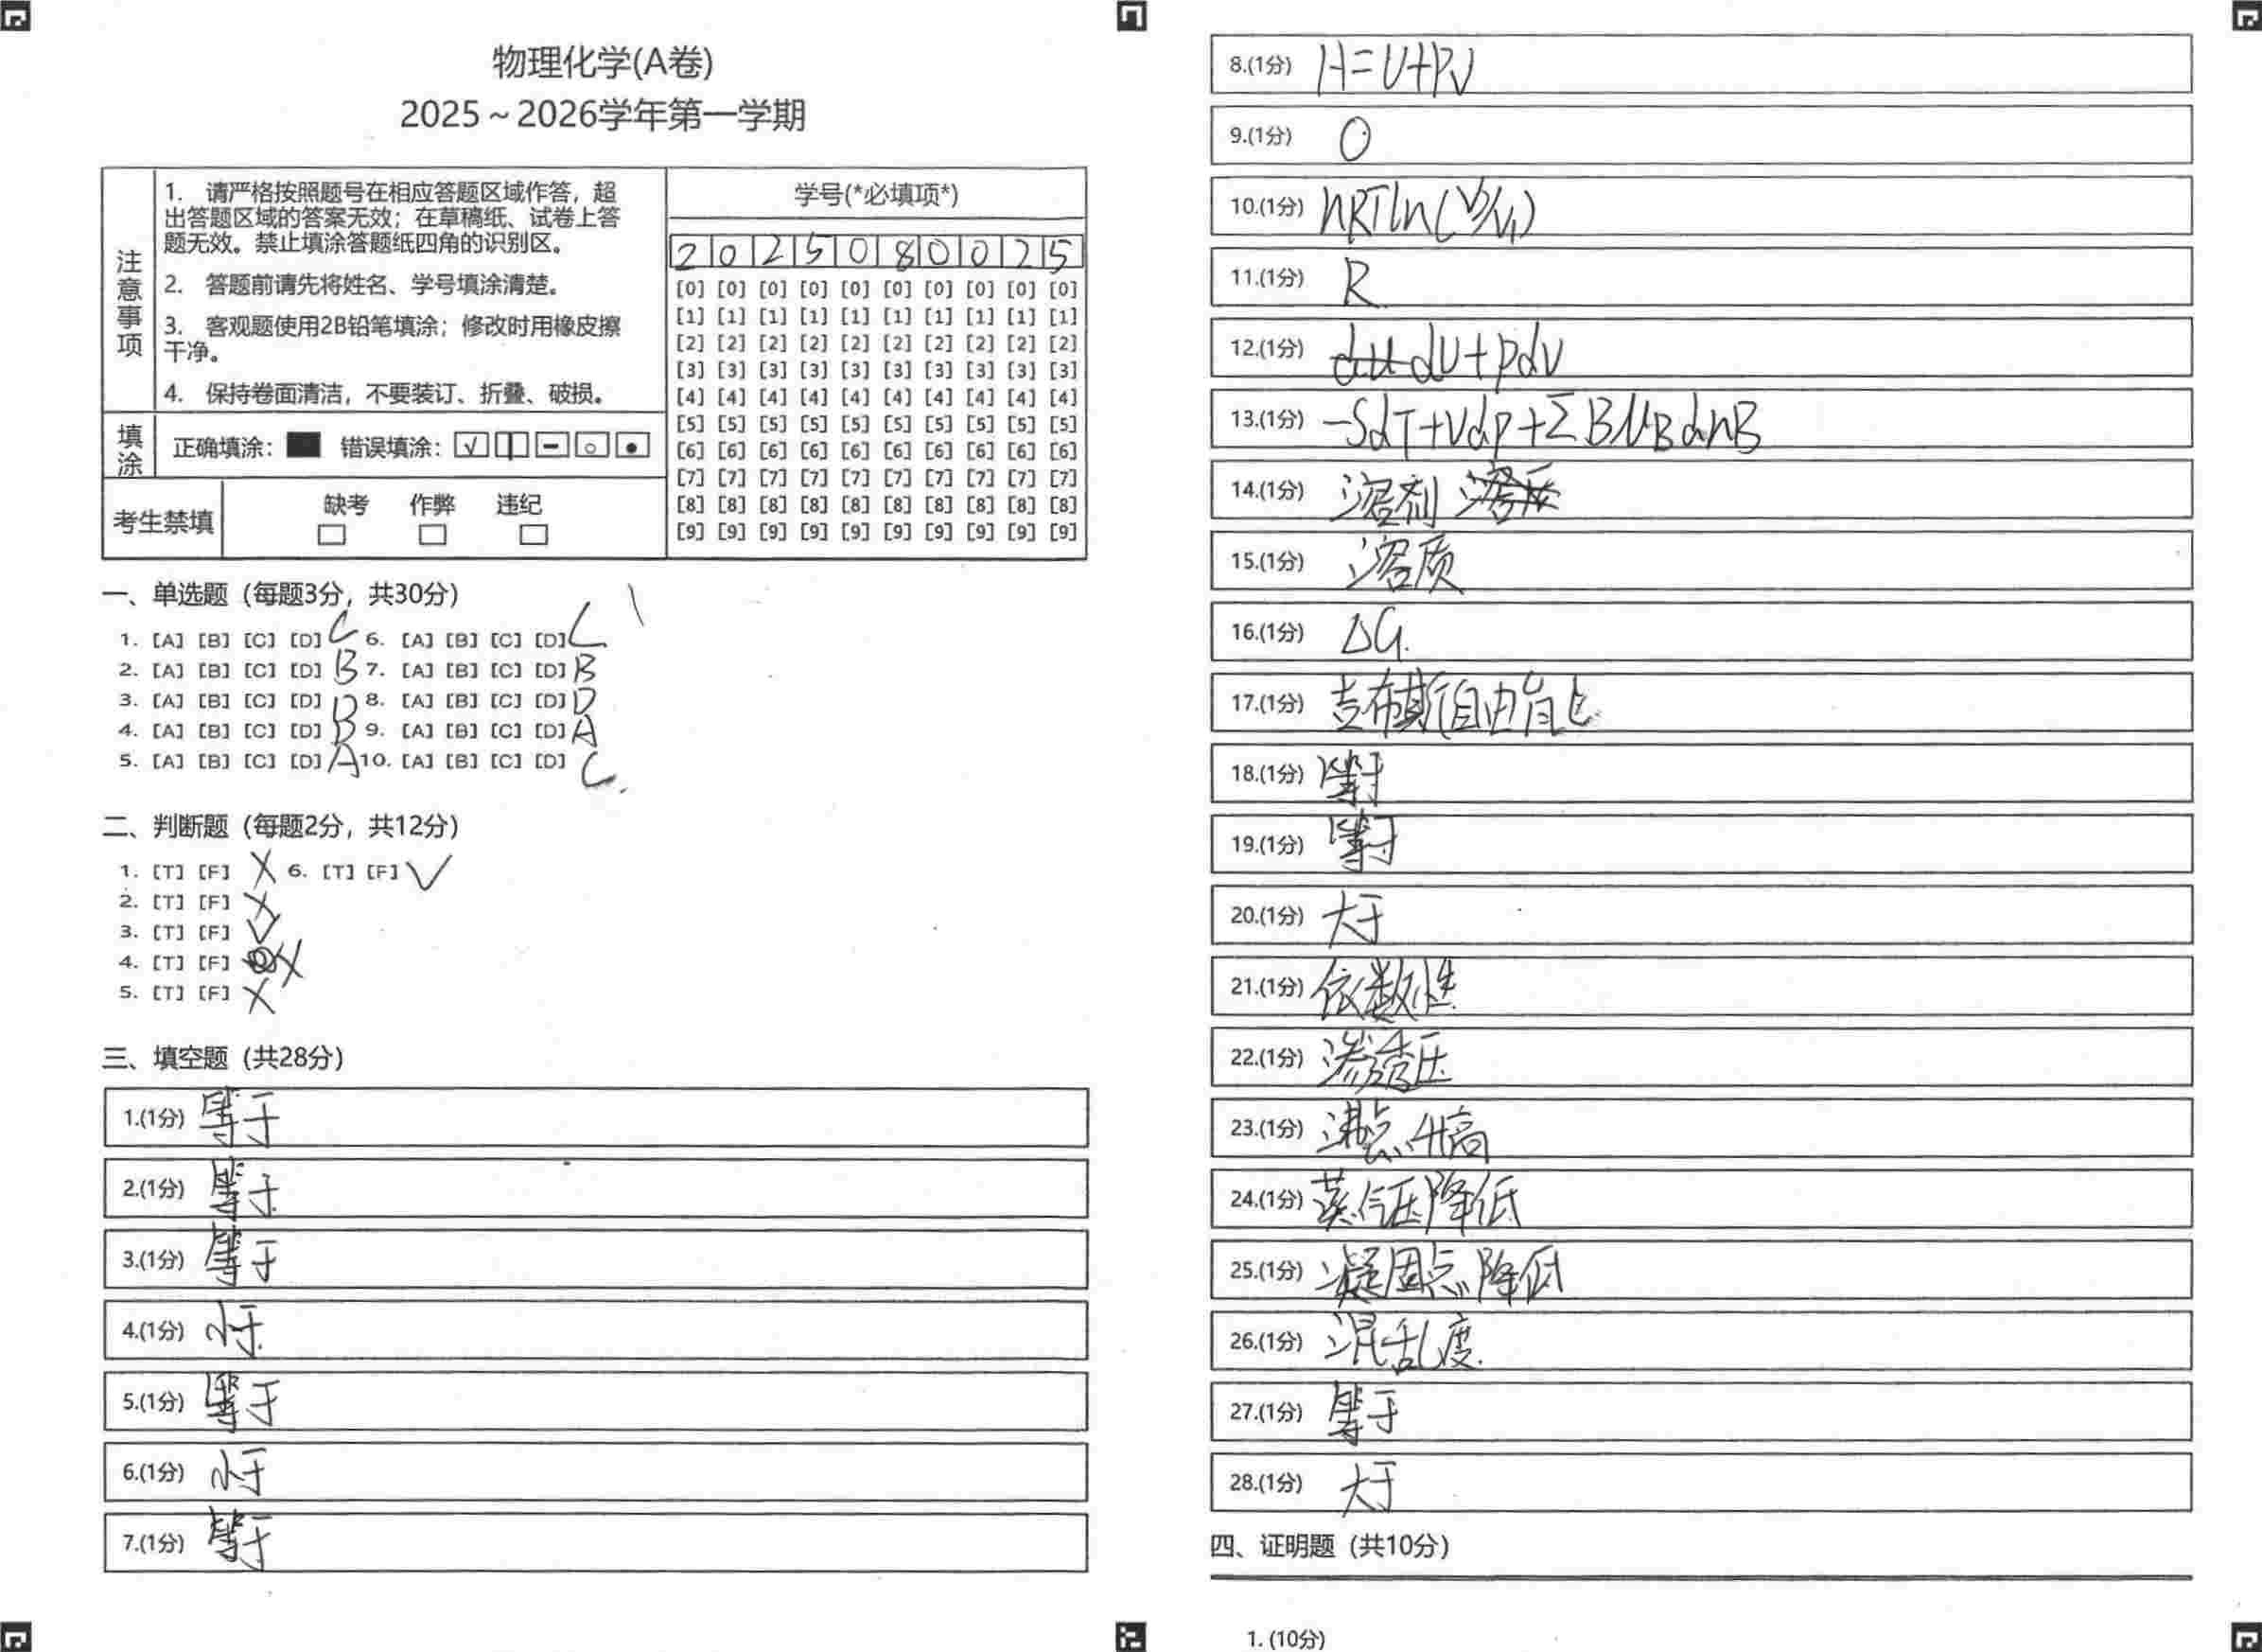 物理化学(A卷)
2025～2026学年第一学期
注意事项
1. 请严格按照题号在相应答题区域作答，超
出答题区域的答案无效；在草稿纸、试卷上答
题无效。禁止填涂答题纸四角的识别区。
2. 答题前请先将姓名、学号填涂清楚。
3. 客观题使用2B铅笔填涂；修改时用橡皮擦
干净。
4. 保持卷面清洁，不要装订、折叠、破损。
填涂
正确填涂： 错误填涂：
考生禁填
缺考 作弊 违纪
学号(*必填项*)
2 0 2 5 0 8 0 0 2 5
[0] [0] [0] [0] [0] [0] [0] [0] [0] [0]
[1] [1] [1] [1] [1] [1] [1] [1] [1] [1]
[2] [2] [2] [2] [2] [2] [2] [2] [2] [2]
[3] [3] [3] [3] [3] [3] [3] [3] [3] [3]
[4] [4] [4] [4] [4] [4] [4] [4] [4] [4]
[5] [5] [5] [5] [5] [5] [5] [5] [5] [5]
[6] [6] [6] [6] [6] [6] [6] [6] [6] [6]
[7] [7] [7] [7] [7] [7] [7] [7] [7] [7]
[8] [8] [8] [8] [8] [8] [8] [8] [8] [8]
[9] [9] [9] [9] [9] [9] [9] [9] [9] [9]
一、单选题（每题3分，共30分）
1. [A] [B] [C] [D] C 6. [A] [B] [C] [D] C
2. [A] [B] [C] [D] B 7. [A] [B] [C] [D] B
3. [A] [B] [C] [D] D 8. [A] [B] [C] [D] D
4. [A] [B] [C] [D] B 9. [A] [B] [C] [D] A
5. [A] [B] [C] [D] A 10. [A] [B] [C] [D] C
二、判断题（每题2分，共12分）
1. [T] [F] X 6. [T] [F] √
2. [T] [F] X
3. [T] [F] √
4. [T] [F] X
5. [T] [F] X
三、填空题（共28分）
1.(1分) 等于
2.(1分) 等于
3.(1分) 等于
4.(1分) 小于
5.(1分) 等于
6.(1分) 小于
7.(1分) 等于
8.(1分) H=U+PV
9.(1分) 0
10.(1分) nRTln(V2/V1)
11.(1分) R
12.(1分) dU+pdV
13.(1分) -SdT+Vdp+ΣBμBdnB
14.(1分) 溶剂
15.(1分) 溶质
16.(1分) ΔG
17.(1分) 吉布斯自由能
18.(1分) 等于
19.(1分) 等于
20.(1分) 大于
21.(1分) 依数性
22.(1分) 渗透压
23.(1分) 沸点升高
24.(1分) 蒸气压降低
25.(1分) 凝固点降低
26.(1分) 混乱度
27.(1分) 等于
28.(1分) 大于
四、证明题（共10分）
1. (10分)